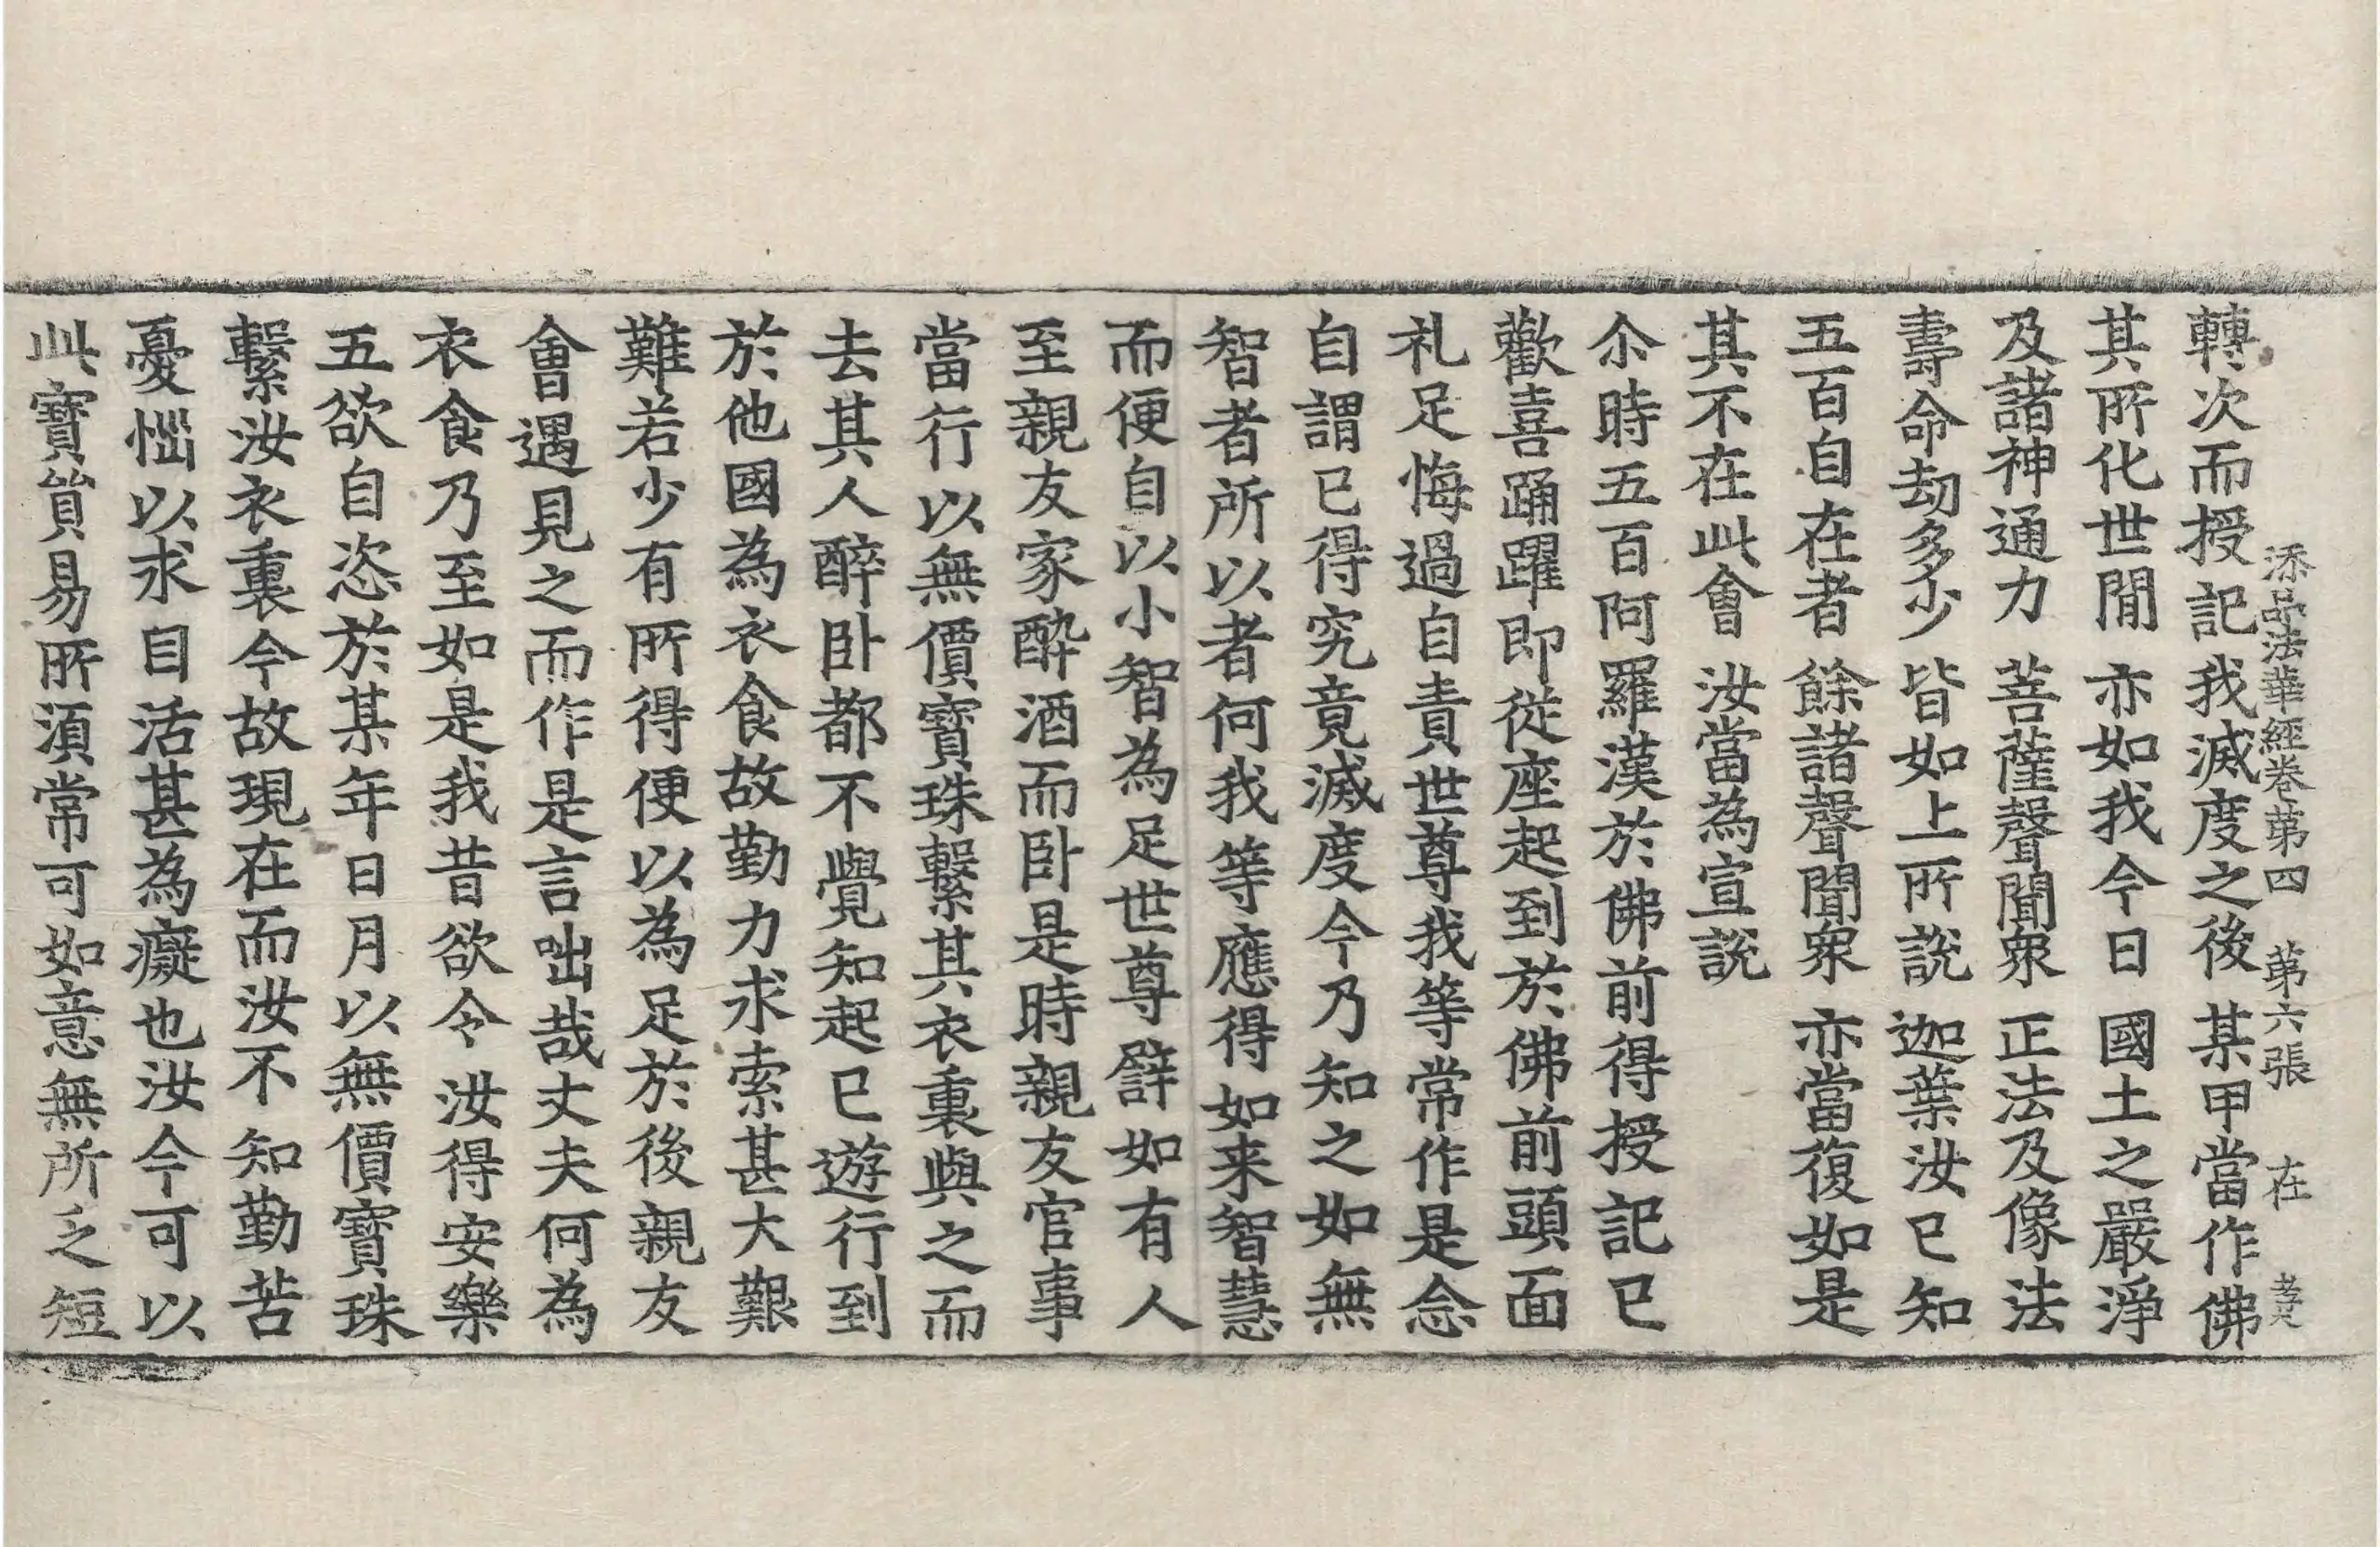 添品法華經卷第四 第六張 在 孝大
轉次而授記我滅度之後 某甲當作佛
其所化世閒 亦如我今日 國土之嚴淨
及諸神通力 菩薩聲聞衆 正法及像法
壽命劫多少 皆如上所說 迦葉汝已知
五百自在者 餘諸聲聞衆 亦當復如是
其不在此會 汝當為宣說
尒時五百阿羅漢於佛前得授記已
歡喜踊躍即從座起到於佛前頭面
礼足悔過自責世尊我等常作是念
自謂已得究竟滅度今乃知之如無
智者所以者何我等應得如来智慧
而便自以小智為足世尊譬如有人
至親友家醉酒而卧是時親友官事
當行以無價寶珠繫其衣裏與之而
去其人醉卧都不覺知起已遊行到
於他國為衣食故勤力求索甚大艱
難若少有所得便以為足於後親友
會遇見之而作是言咄哉丈夫何為
衣食乃至如是我昔欲令汝得安樂
五欲自恣於某年日月以無價寶珠
繫汝衣裏今故現在而汝不知勤苦
憂惱以求自活甚為癡也汝今可以
此寶貿易所湏常可如意無所乏短